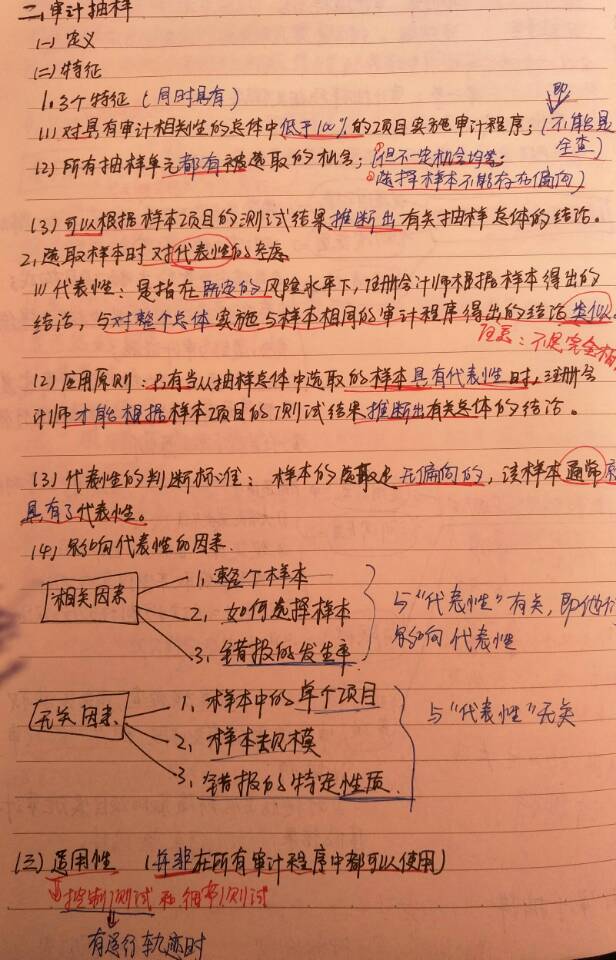 二、审计抽样
(一) 定义
(二) 特征
1. 3个特征 (同时具有)
(1) 对具有审计相关性的总体中低于100%的项目实施审计程序; (不能是全查)
即
(2) 所有抽样单元都有被选取的机会; (①但不一定机会均等;
②选择样本不能存在偏向)
(3) 可以根据样本项目的测试结果推断出有关抽样总体的结论。
2. 选取样本时对代表性的考虑
(1) 代表性: 是指在既定的风险水平下, 注册会计师根据样本得出的
结论, 与对整个总体实施与样本相同的审计程序得出的结论类似。
注意: 不是完全相
(2) 应用原则: 只有当从抽样总体中选取的样本具有代表性时, 注册会
计师才能根据样本项目的测试结果推断出有关总体的结论。
(3) 代表性的判断标准: 样本的选取是无偏向的, 该样本通常
具有了代表性。
(4) 影响代表性的因素.
相关因素
1. 整个样本
2. 如何选择样本
3. 错报的发生率
与“代表性”有关, 即他们
影响代表性
无关因素
1. 样本中的单个项目
2. 样本规模
3. 错报的特定性质.
与“代表性”无关
(三) 适用性 (并非在所有审计程序中都可以使用)
控制测试和细节测试
有运行轨迹时